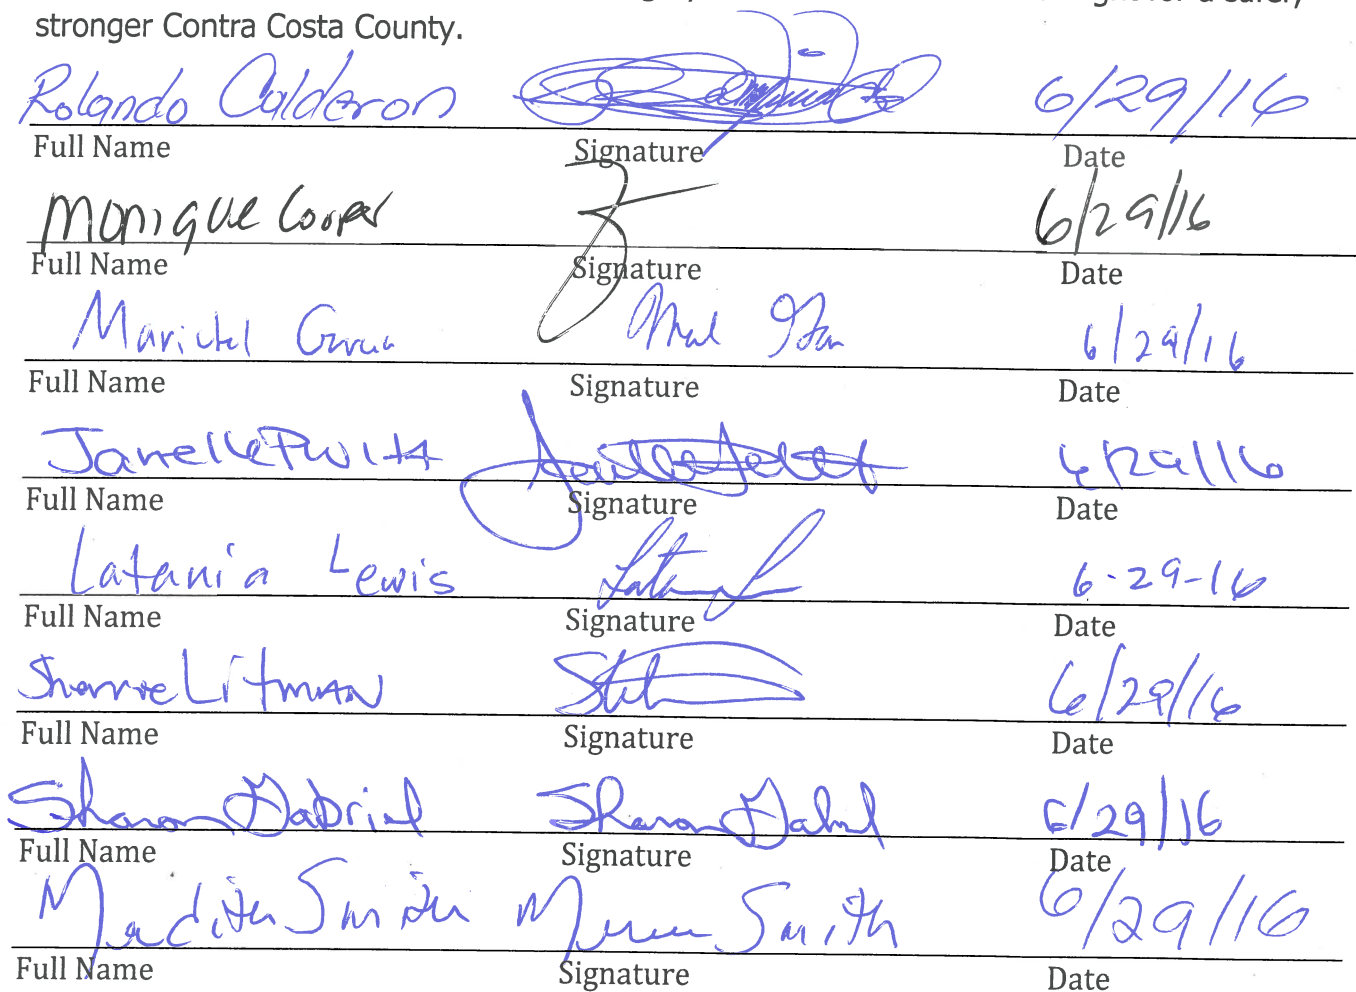 stronger Contra Costa County.
Rolando Calderon 6/29/16
Full Name Signature Date
Monique Cooper 6/29/16
Full Name Signature Date
6/29/16
Full Name Signature Date
Janelle 6/29/16
Full Name Signature Date
Latania Lewis 6-29-16
Full Name Signature Date
Litman 6/29/16
Full Name Signature Date
Sharon Gabriel Sharon Gabriel 6/29/16
Full Name Signature Date
Smith Smith 6/29/16
Full Name Signature Date